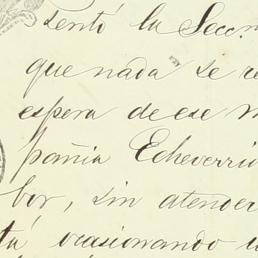 sentó la Secc
que nada se re
espera de ese m
pañia Echeverri
bor, sin atender
tá ocasionando